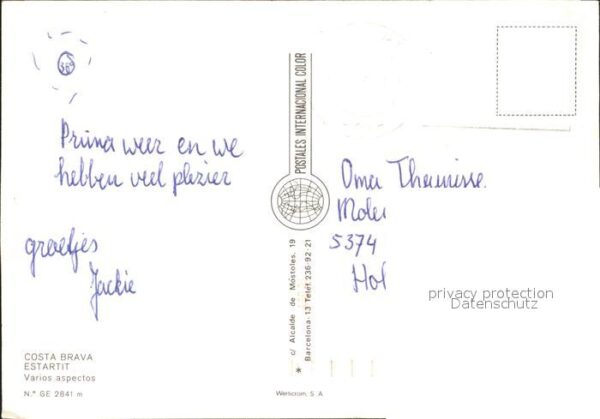 36°
Prima weer en we
hebben veel plezier
groetjes
Jackie
COSTA BRAVA
ESTARTIT
Varios aspectos
N.° GE 2841 m
POSTALES INTERNACIONAL COLOR
c/ Alcalde de Móstoles, 19
* Barcelona-13 Teléf. 236-92-21
Werscom, S.A.
Oma
5374
Hol
privacy protection
Datenschutz